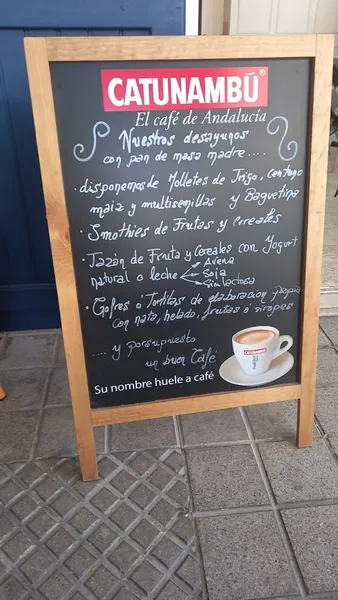 CATUNAMBÚ®
El café de Andalucía
Nuestros desayunos
con pan de masa madre....
· disponemos de Molletes de Trigo, centeno
maiz y multisemillas y Baguetina
· Smothies de Frutas y cereales
· Tazón de Fruta y Cereales con Yogurt
natural o leche
Avena
Soja
Sin lactosa
· Gofres o Tortitas de elaboracion propia
con nata, helado, frutas o siropes
.... y porsupuesto
un buen Café
CATUNAMBÚ
Su nombre huele a café